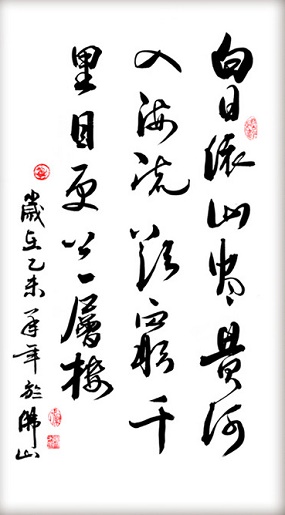 白日依山尽黄河
入海流欲窮千
里目更上一層楼
歲在乙未年於佛山